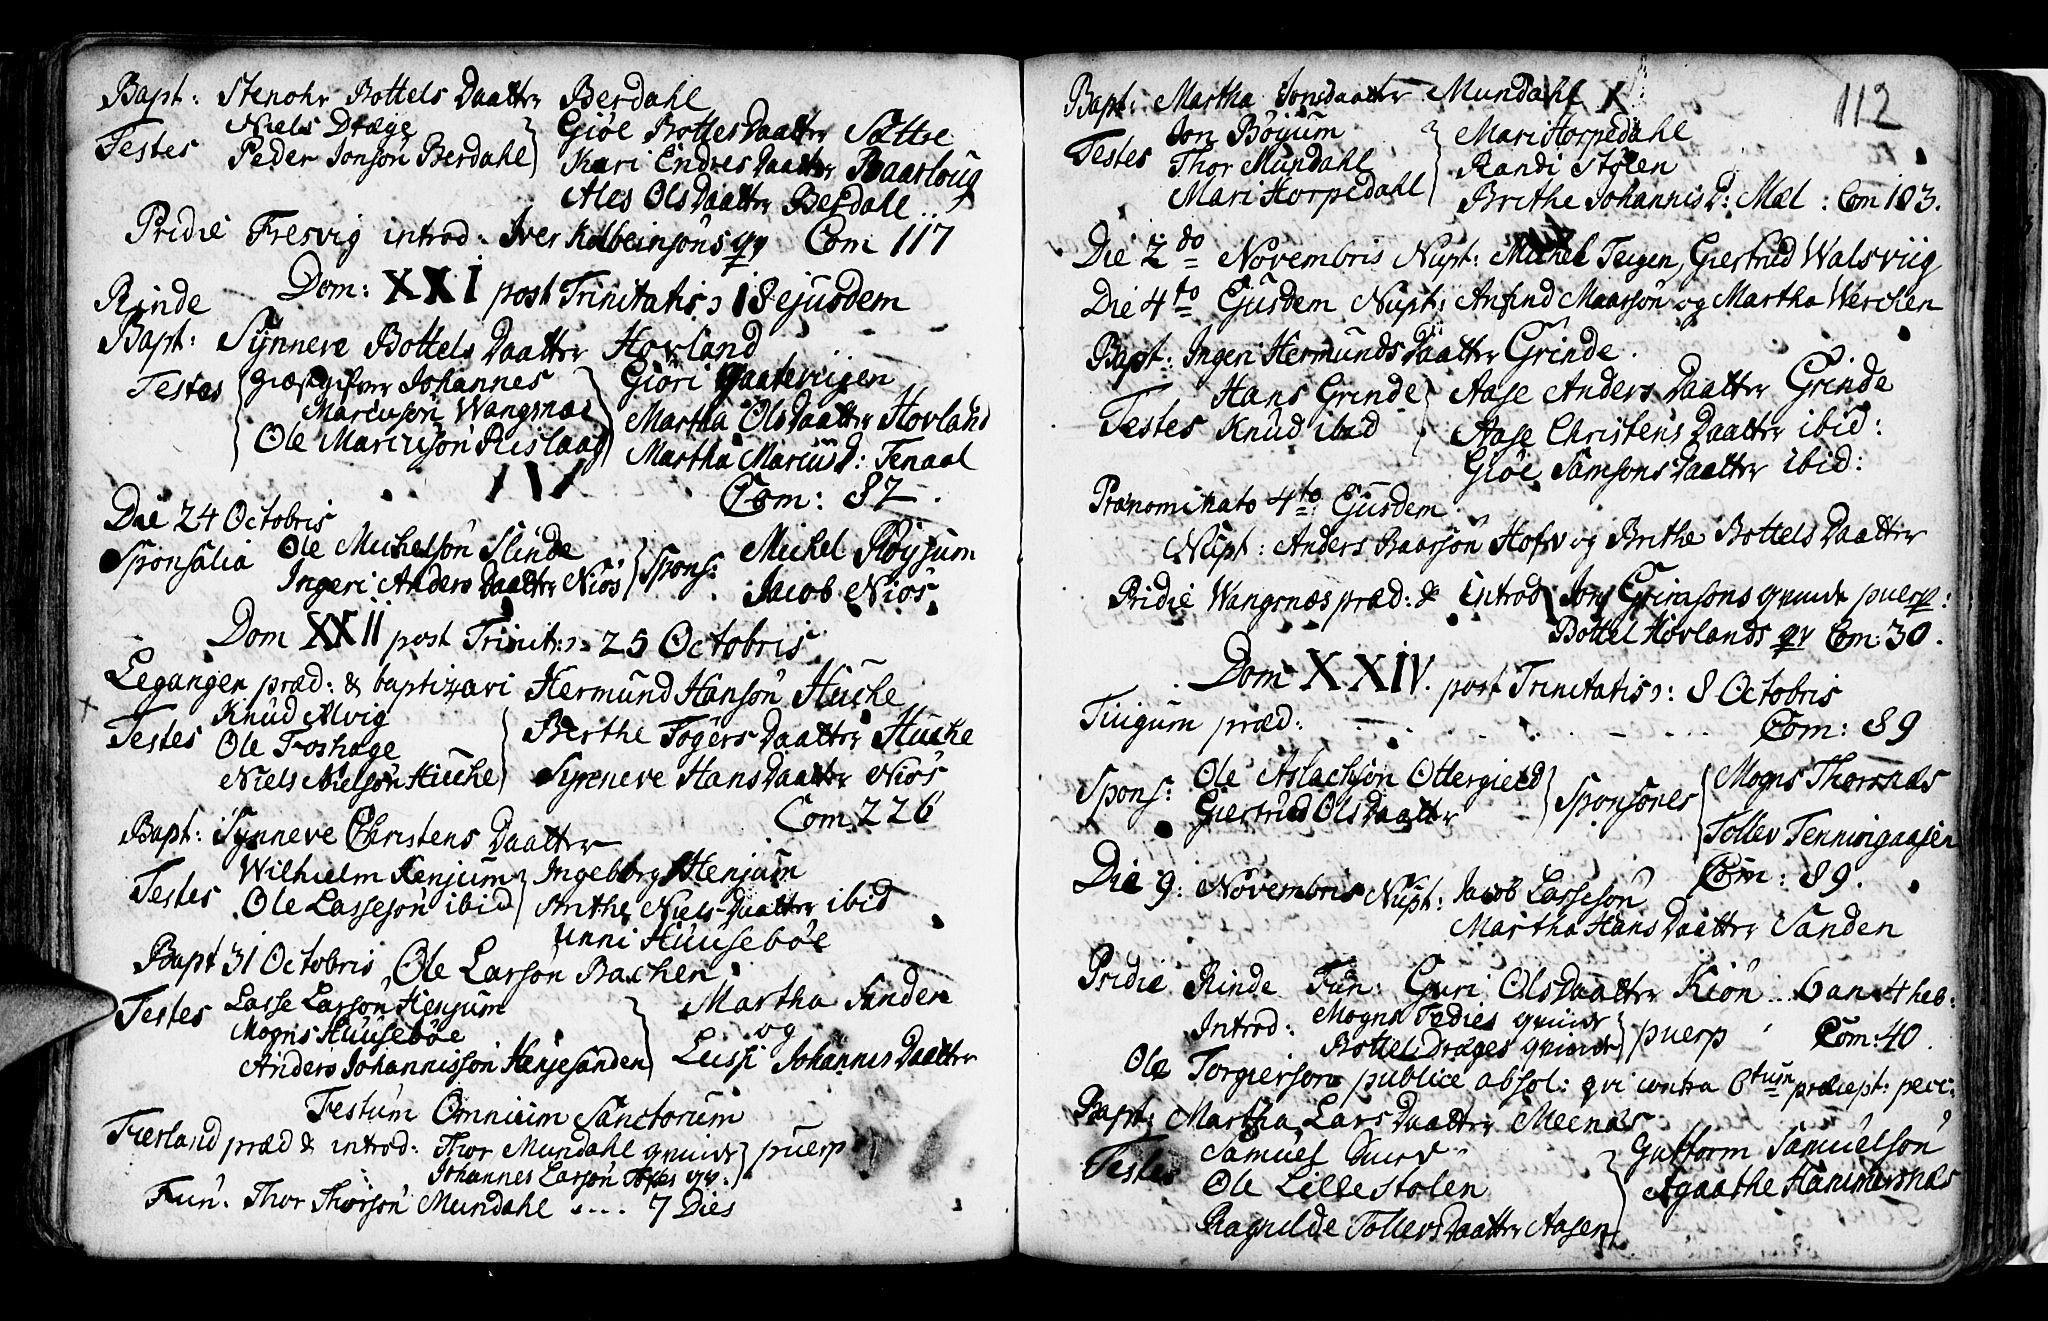 Bapt: Stenohr Bottels Daatter Berdahl
Testes Niels Dræge
Peder Jonson Berdahl
Giöe Bottes Daatter Sættre
Kari Endres Daatter Baarloug
Ales Ols Daatter Berdahl
Pridie Fresvig introd. Iver Kolbeinsons qv Com 117
Dom: XXI post Trinitatis 18 ejusdem
Rinde
Bapt: Synneve Bottels Daatter Hovland
Testes Giæstgifver Johannes
Marcuson Wangsnæs
Ole Marcuson Rislaag
Giöri
Martha Ols Daatter Hovland
Martha Marcus D: Fenaal
Com: 87.
Die 24 Octobris
Sponsalia Ole Michelson Slinde
Ingeri Anders Daatter Niös
Spons: Michel Röysum
Jacob Niös
Dom XXII post Trinit: 25 Octobris
Leganger præd: & baptizavi Hermund Hanson Huche
Testes Knud Alvig
Ole Froshage
Niels Nielson Huche
Berthe Togers Daatter Huche
Synneve Hans Daatter Niös
Com 226
Bapt: Synneve Christens Daatter
Testes Wilhielm Henjum
Ole Lasseson ibid
Ingeborg Henjum
Anthe Niels Daatter ibid
Unni Huuseböe
Bapt 31 Octobris Ole Larson Bachen
Testes Lasse Larson Henjum
Mogns Huuseböe
Anders Johannisson Henjesanden
Martha Sunden
og
Lussi Johannes Daatter
Festum Omnium Sanctorum
Fierland præd & introd: Thor Mundahl qvinde
Johannes Larson qv.
puerp
Fun: Thor Thorson Mundahl .... 7 Dies
112
Bapt: Martha Jonsdaatter Mundahl X
Testes Jon Böyum
Thor Mundahl
Mari Horpedahl
Mari Horpedahl
Randi Stölen
Brithe Johannis D: Mæl : Com 103.
Die 2do Novembris Nupt: Michel Teigen, Giertrud Walsviig
Die 4to Ejusdem Nupt: Anfind Maarson og Martha Werchen
Bapt: Ingeri Hermunds Daatter Grinde.
Testes Hans Grinde
Knud ibid
Aase Anders Daatter Grinde
Aase Christens Daatter ibid:
Giöe Samsons Daatter ibid:
Prænominato 4to Ejusdem.
Nupt: Anders Baarson Hofv og Brithe Bottels Daatter
Pridie Wangsnæs præd: & introd Jons Grimsons qvinde puerp:
Bottel Hovlands qv Com: 30.
Dom XXIV. post Trinitatis: 8 Octobris
Tiugum præd: Com: 89
Spons: Ole Aslachson Ottergield
Giertrud Ols Daatter
Sponsores Mogns Thorsnæs
Tollev Tenningaasen
Com: 89.
Die 9: Novembris Nupt: Jacob Lasseson
Martha Hans Daatter Sanden
Pridie Rinde Fun: Guri Ols Daatter Kiön .. 6 an 4 heb:
Introd: Mogns Tedies qvinde
Bottel Dræges qvinde
puerp Com: 40.
Ole Torgierson publice absol: qvi contra 6tum præcept: pecc:
Bapt: Martha Lars Daatter Meenæs
Testes Samuel
Ole Lillestölen
Ragnilde Tollevs Daatter Aasen
Guttorm Samuelson
Agaathe Hammersnæs